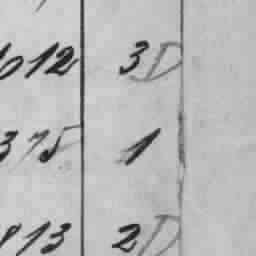 012 3D
375 1
813 2D